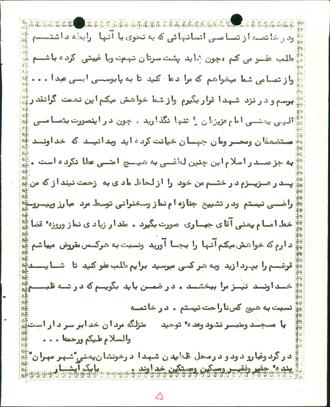 ودر خاتمه از تمامی انسانهائی که به نحوی با آنها رابطه داشتم
طلب عفو می کنم ،چون شاید پشت سرتان تهمت ویا غیبتی کرده باشم
واز تمامی شما میخواهم که مرا دعا کنید تا به پابوسی ابی عبدا ...
برسم ودر نزد شهدا قرار بگیرم واز شما خواهش میکنم این نعمت گرانقدر
الهی یعنی امام عزیزمان را تنها نگذارید ، چون در اینصورت بتمامی
مستضعفان ومحرومان جهان خیانت کرده اید وبدانید که خداوند
به جز صدر اسلام این چنین لطفی به هیچ امتی عطا نکرده است .
پدر عزیزم در ختم من خود را از لحاظ مادی به زحمت نینداز که من
راضی نیستم ودر تشییع جنازه ام نماز وسخنرانی توسط مرد مبارز وپیرو
خط امام یعنی آقای جباری صورت بگیرد . مقدار زیادی نماز وروزه قضا
دارم که خواهش میکنم آنها را بجا آورید ونسبت به هرکس مقروض میباشم
قرضم را بپردازید وبه هر کسی میرسید برایم طلب عفو کنید تا شاید
خداوند نیز مرا ببخشد . در ضمن باید بگویم که در ته قلبم
نسبت به هیچ کس ناراحت نیستم . در خاتمه
یا مسجد ومنبر نشود وعده توحید منزلگه مردان خدا بر سر دار است
والسلام علیکم ورحمه ا...
در گرد وغبار ودود ودر محل غلطیدن شهدا در خونشان یعنی"شهر مهران"
بنده حقیر وفقیر ومسکین ومستکین خداوند . بابک آبشار
۵